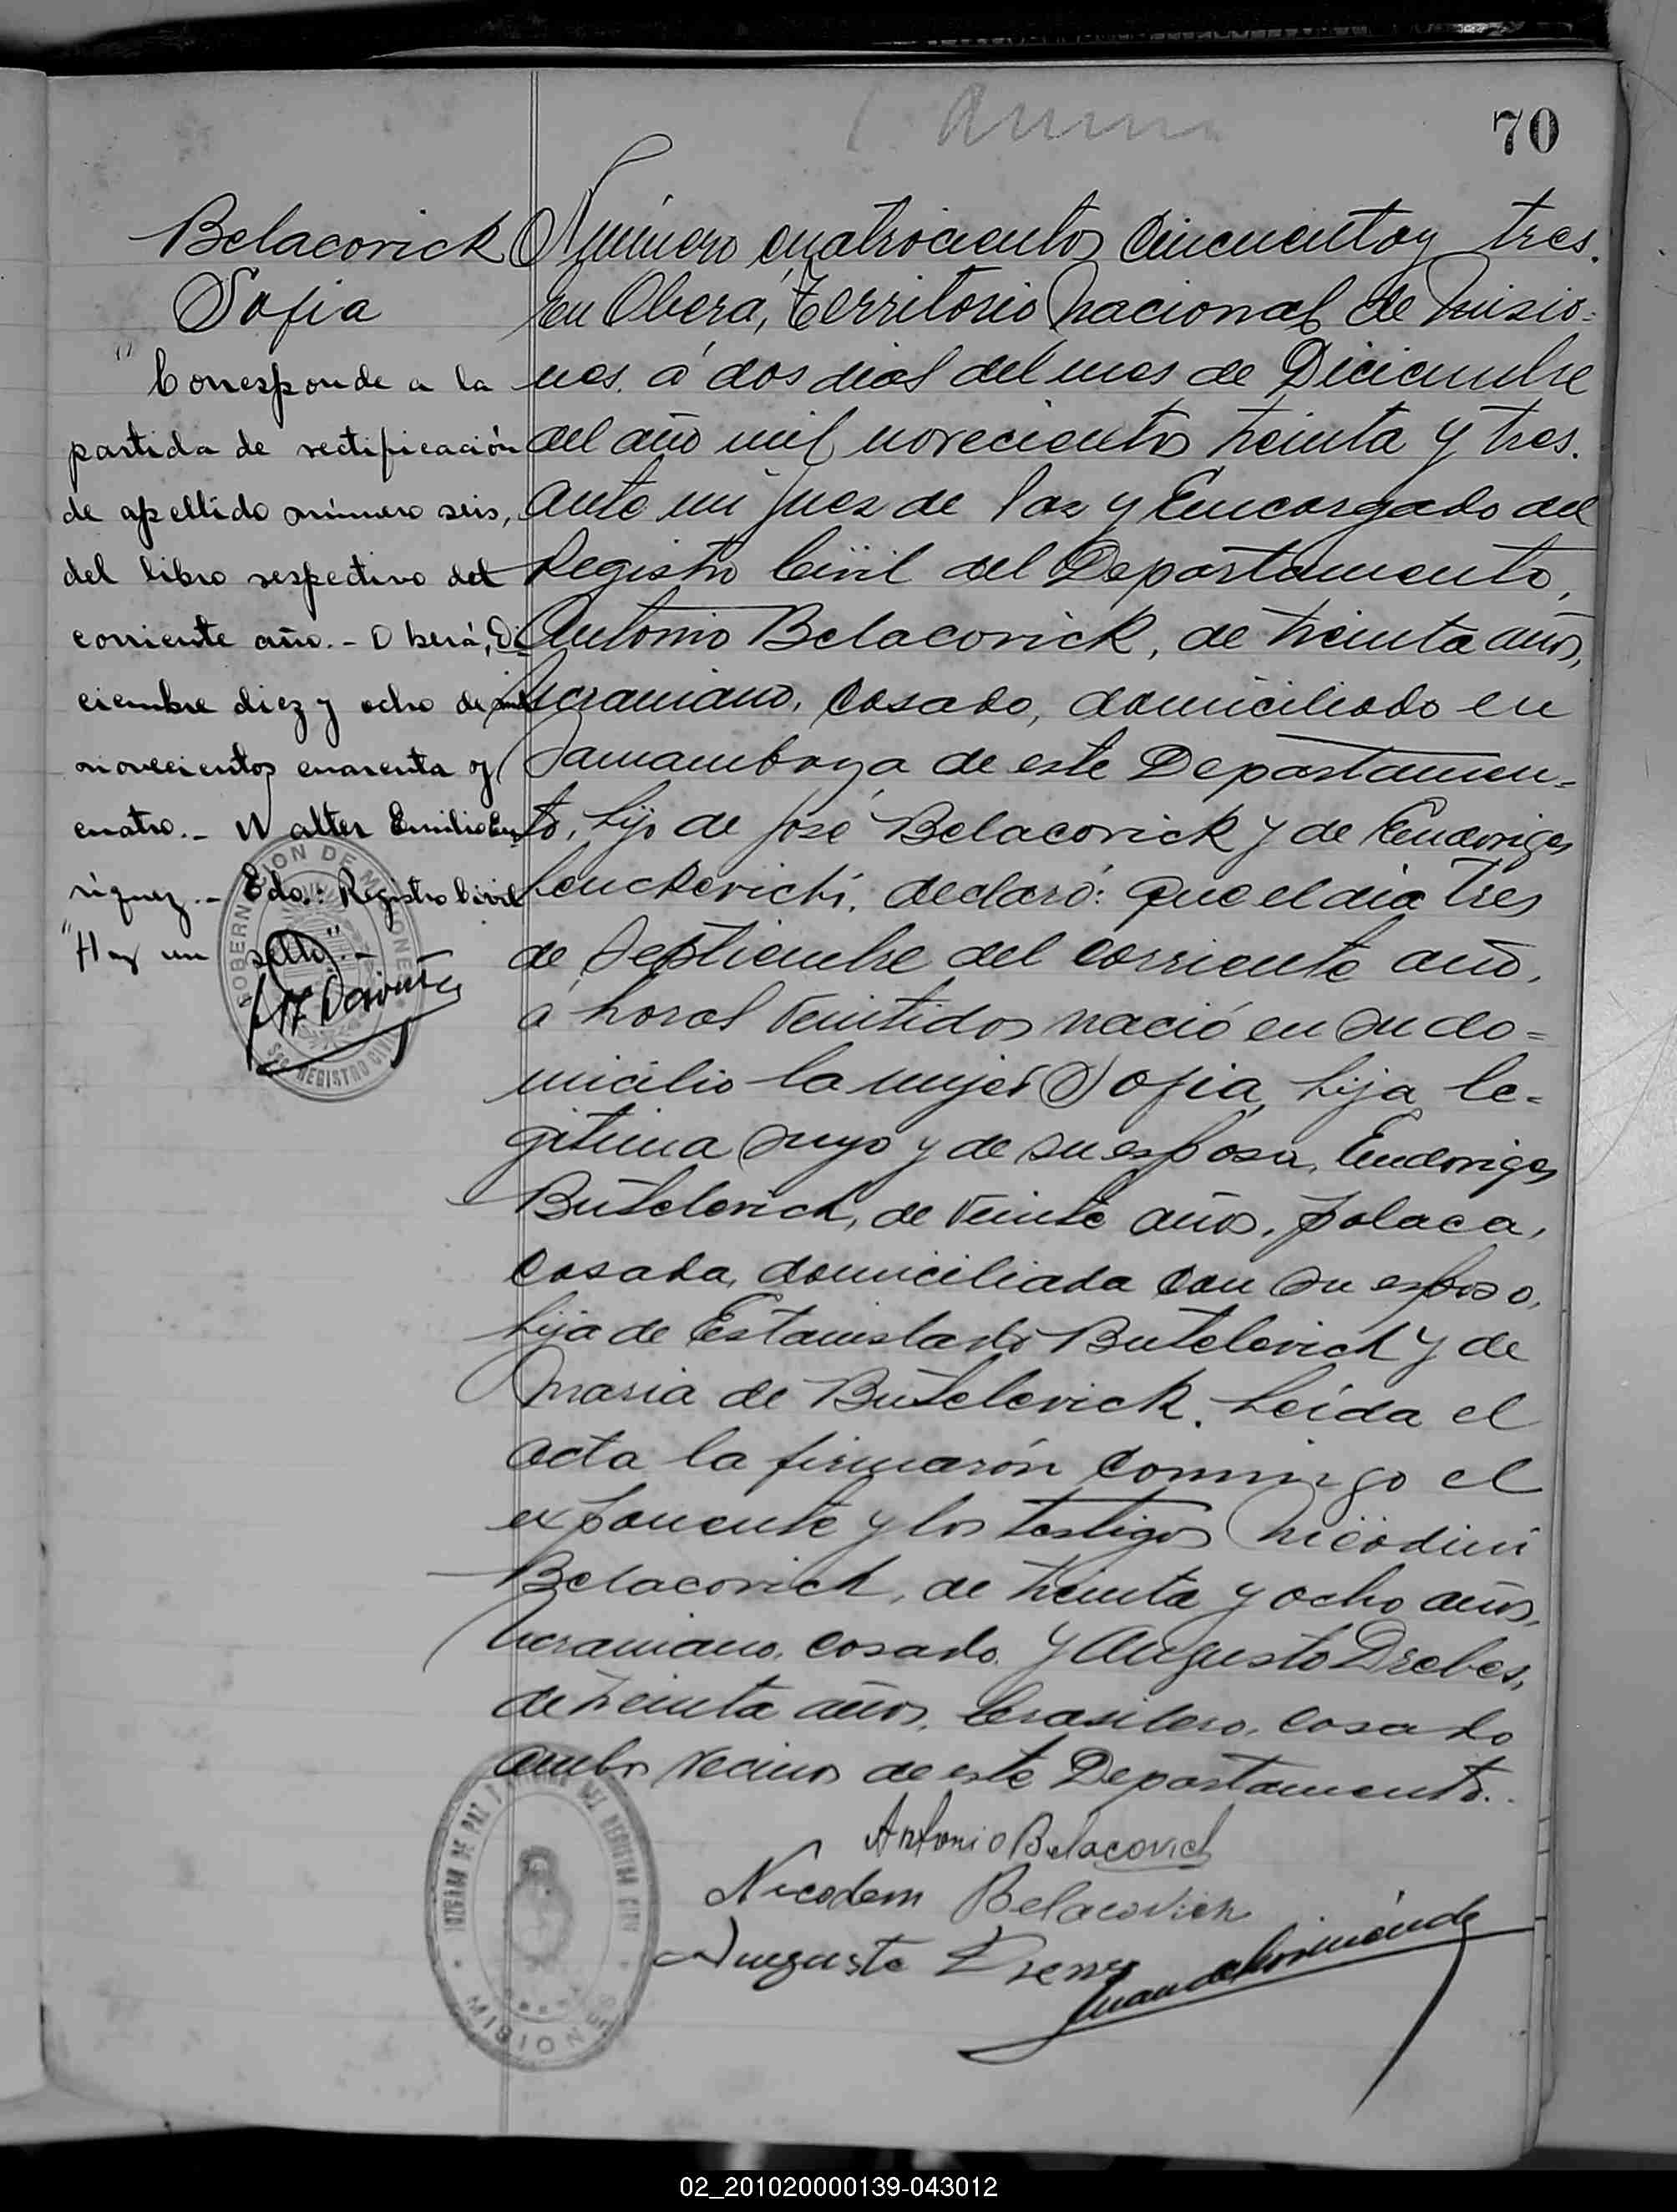 70
Belacovick
Sofia
"Corresponde a la
partida de rectificación
de apellido número seis,
del libro respectivo del
corriente año.- Oberá, Di-
ciembre diez y ocho de mil
novecientos cuarenta y
cuatro.- Walter Emilio En-
riquez.- Edo.: Registro Civil
"Hay un sello".-
Número cuatrocientos cincuenta y tres.
en Oberá, Territorio Nacional de Misio=
nes, á dos dias del mes de Diciembre
del año mil novecientos treinta y tres.
ante mi Juez de Paz y Encargado del
Registro Civil del Departamento,
Antonio Belacovick, de treinta años,
Ucraniano, casado, domiciliado en
Samambaya de este Departamen=
to, hijo de José Belacovick y de Eudoviges
declaró: Que el dia tres
de Septiembre del corriente año,
á horas veintidos nació en su do=
micilio la mujer Sofia, hija le=
gitima suya y de su esposa, Eudoviges
Butelevich, de veinte años, polaca,
casada, domiciliada con su esposo,
hija de Estanislado Butelevich y de
Maria de Butelevick. Leída el
acta la firmarón conmigo el
exponente y los testigos Nicodimi
Belacovich, de treinta y ocho años,
Ucraniano, casado y Augusto Drebes,
de treinta años, brasilero, casado
ambos vecinos de este Departamento..
Antonio Belacovich
Nicodem Belacovich
Augusto
GOBERNACION DE MISIONES
SEC. REGISTRO CIVIL
JUZGADO DE PAZ Y OFICINA DEL REGISTRO CIVIL
OBERA
MISIONES
02_201020000139-043012